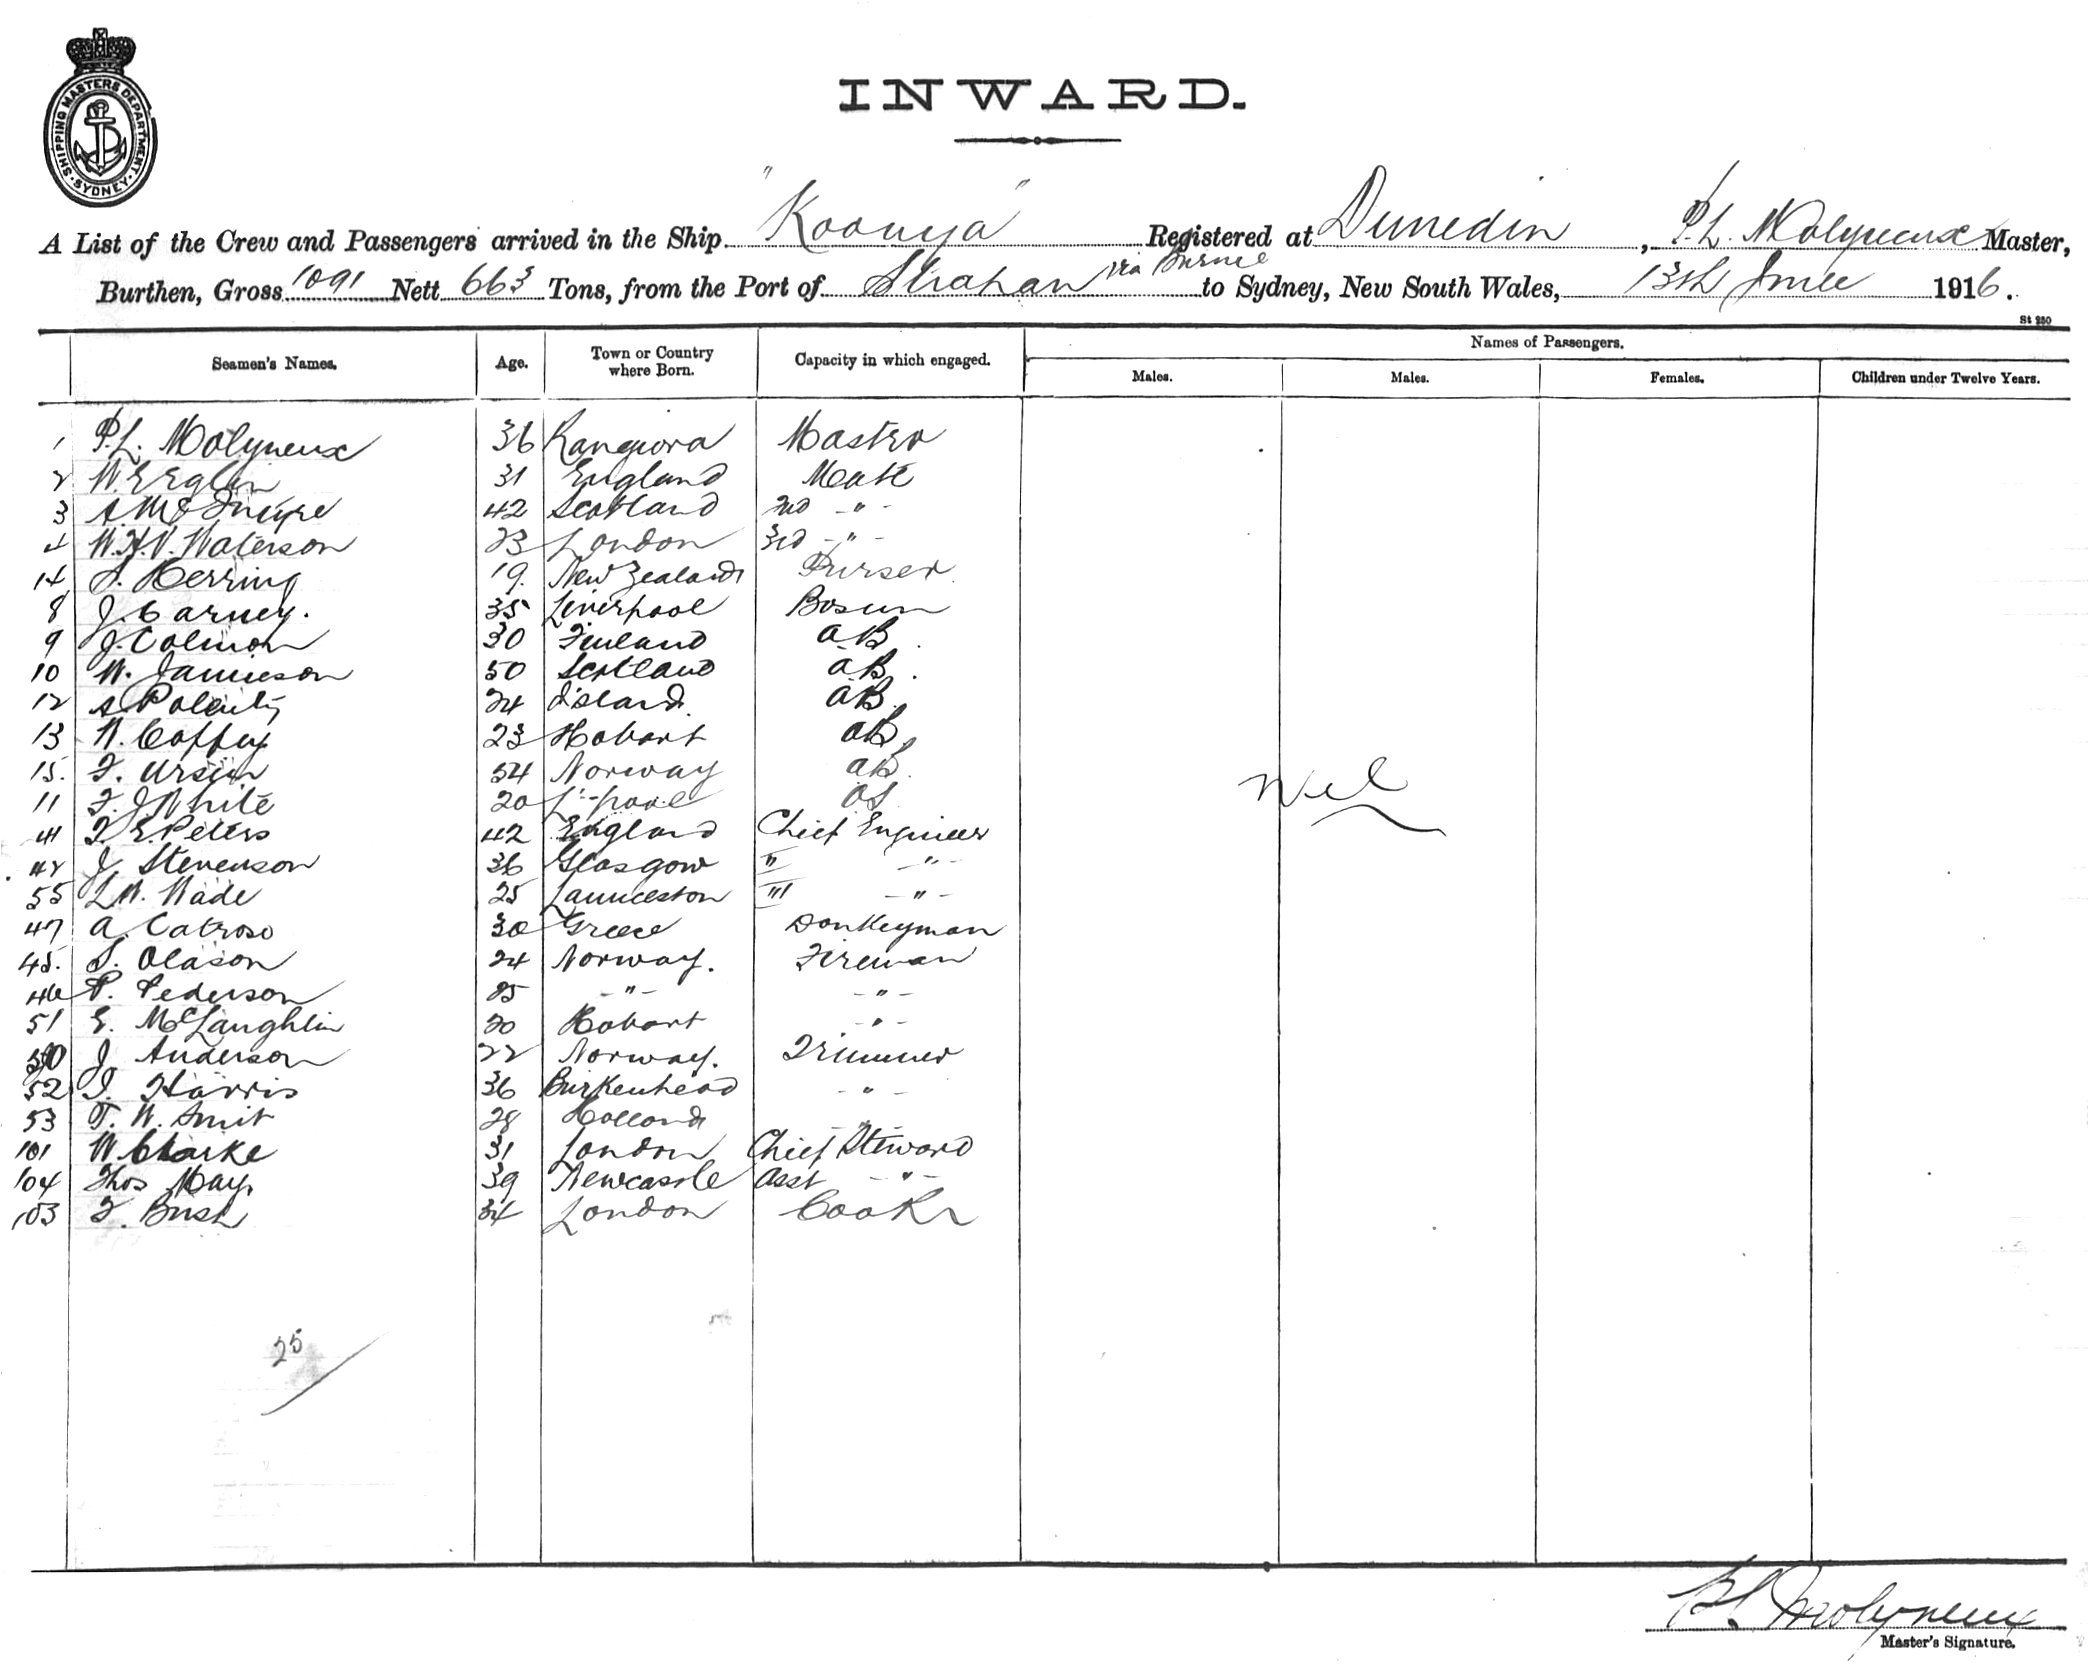 SHIPPING MASTERS DEPARTMENT. SYDNEY
INWARD.
A List of the Crew and Passengers arrived in the Ship "Koonya" Registered at Dunedin, P.L. Molyneux Master,
via Burnie
Burthen, Gross 1091 Nett 663 Tons, from the Port of Strahan to Sydney, New South Wales, 13th June 1916.
St 250
Seamen's Names. Age. Town or Country where Born. Capacity in which engaged. Names of Passengers.
Males. Males. Females. Children under Twelve Years.
1 P.L. Molyneux 36 Rangiora Master
2 W. E Eglin 31 England Mate
3 A. McIntyre 42 Scotland 2nd -"-
4 W.H.V. Waterson 23 London 3rd -"-
14 Herring 19. New Zealand Purser
8 J. Carney. 35 Liverpool Bosun
9 J. Colmon 30 Finland AB
10 W. Jamieson 50 Scotland AB.
12 A 24 Island. AB.
13 W. Coffey 23 Hobart AB,
15. F. Ursin 54 Norway AB.
11 F. J White 20 L'pool OS
41 E. Peters 42 England Chief Engineer
42 J Stevenson 36 Glasgow " -"-
55 L W. Wade 25 Launceston "' -"-
47 A. Catroso 30 Greece Donkeyman
45. S. Olason 24 Norway. Fireman
46 P. Pederson 25 -"- -"-
51 E. McLaughlin 20 Hobart -"-
50 J Anderson 22 Norway. Trimmer
52 J. Harris 36 Birkenhead -"-
53 T. W. Smit 28 Holland -"-
101 W. Clarke 31 London Chief Steward
104 Thos May. 39 Newcastle Asst -"-
103 F. Bush 34 London Cook
Nil
25
P.L. Molyneux
Master's Signature.